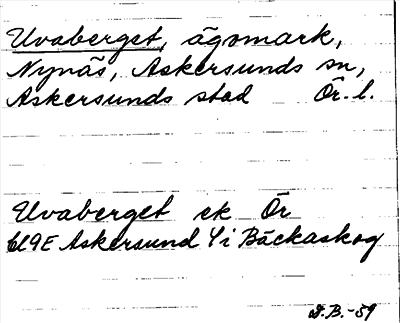 Uvaberget, ägomark,
Nynäs, Askersunds sn,
Askersunds stad Ör. l.
Uvaberget ek Ör
61 9E Askersund Y i Bäckaskog
D.B.-59